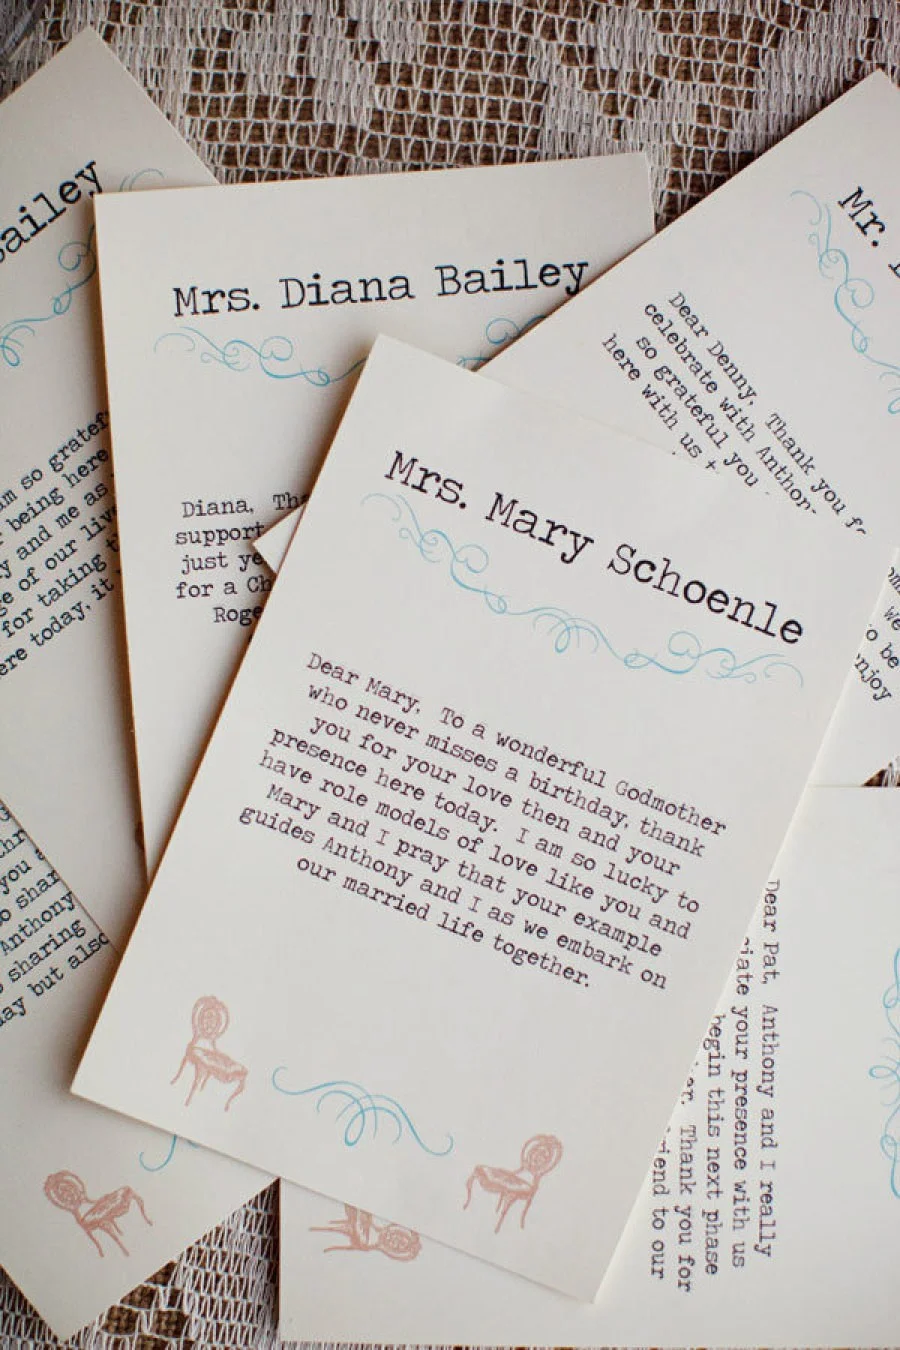 Bailey
am so
being here
y and me as
of our
for taking
ere today, it
you
Anthony
sharing
ay but also
Mrs. Diana Bailey
Diana,
support
just
for a
Mr.
Dear Denny, Thank you
celebrate with
so grateful you
here with us
we
o be
enjoy
Mrs. Mary Schoenle
Dear Mary, To a wonderful Godmother
who never misses a birthday, thank
you for your love then and your
presence here today. I am so lucky to
have role models of love like you and
Mary and I pray that your example
guides Anthony and I as we embark on
our married life together.
Dear Pat, Anthony and I really
ciate your presence with us
begin this next phase
er. Thank you for
riend to our